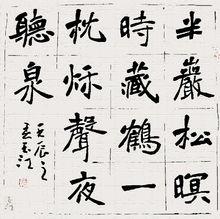 半巖松暝
時藏鶴一
枕秋聲夜
聽泉
壬辰之